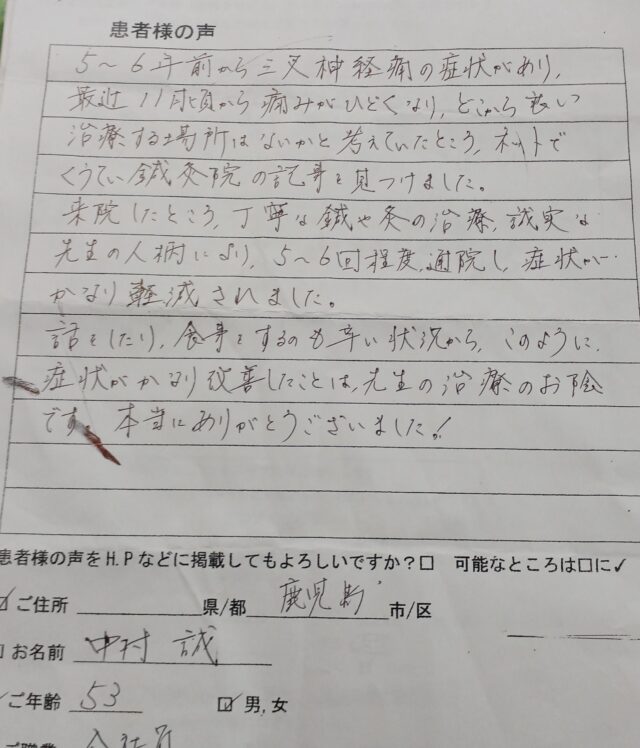 患者様の声
5〜6年前から三叉神経痛の症状があり、
最近11月頃から痛みがひどくなり、どこから良い
治療する場所はないかと考えていたところ、ネットで
くうてい鍼灸院の記事を見つけました。
来院したところ、丁寧な鍼や灸の治療、誠実な
先生の人柄により、5〜6回程度、通院し、症状が
かなり軽減されました。
話をしたり、食事をするのも辛い状況から、このように、
症状がかなり改善したことは、先生の治療のお陰
です。本当にありがとうございました!
患者様の声をH.Pなどに掲載してもよろしいですか?□ 可能なところは□に✓
ご住所 県/都 鹿児島 市/区
お名前 中村 誠
ご年齢 53 男,女
ご職業